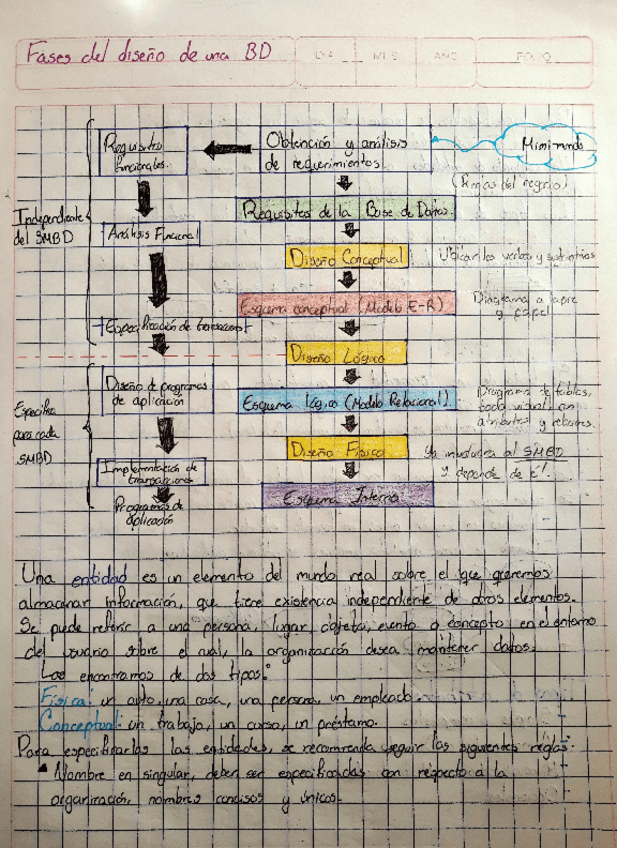 Fases del diseño de una BD
DIA MES AÑO FOLIO
Requisitos funcionales.
Obtención y análisis
de requerimientos.
Mini-mundo
(Reglas del negocio)
Independiente
del SMBD
Requisitos de la Base de Datos.
Análisis Funcional
Diseño Conceptual
Ubican los verbos y sustantivos
Esquema conceptual (Modelo E-R)
Diagrama a lápiz
y papel
Especificación de transacciones
Diseño Lógico
Específico
para cada
SMBD
Diseño de programas
de aplicación
Esquema Lógico (Modelo Relacional)
Diagrama de tablas,
todo visual, con
atributos y relaciones.
Diseño Físico
Ya involucra al SMBD
y depende de él.
Implementación de
transacciones
Esquema Interno
Programas de
aplicación
Una entidad es un elemento del mundo real sobre el que queremos
almacenar información, que tiene existencia independiente de otros elementos.
Se puede referir a una persona, lugar, objeto, evento o concepto en el entorno
del usuario sobre el cual, la organización desea mantener datos.
Las encontramos de dos tipos:
Física: un auto, una casa, una persona, un empleado.
Conceptual: un trabajo, un curso, un préstamo.
Para especificarlas las entidades, se recomienda seguir las siguientes reglas:
Nombre en singular, deben ser especificadas con respecto a la
organización, nombres concisos y únicos.